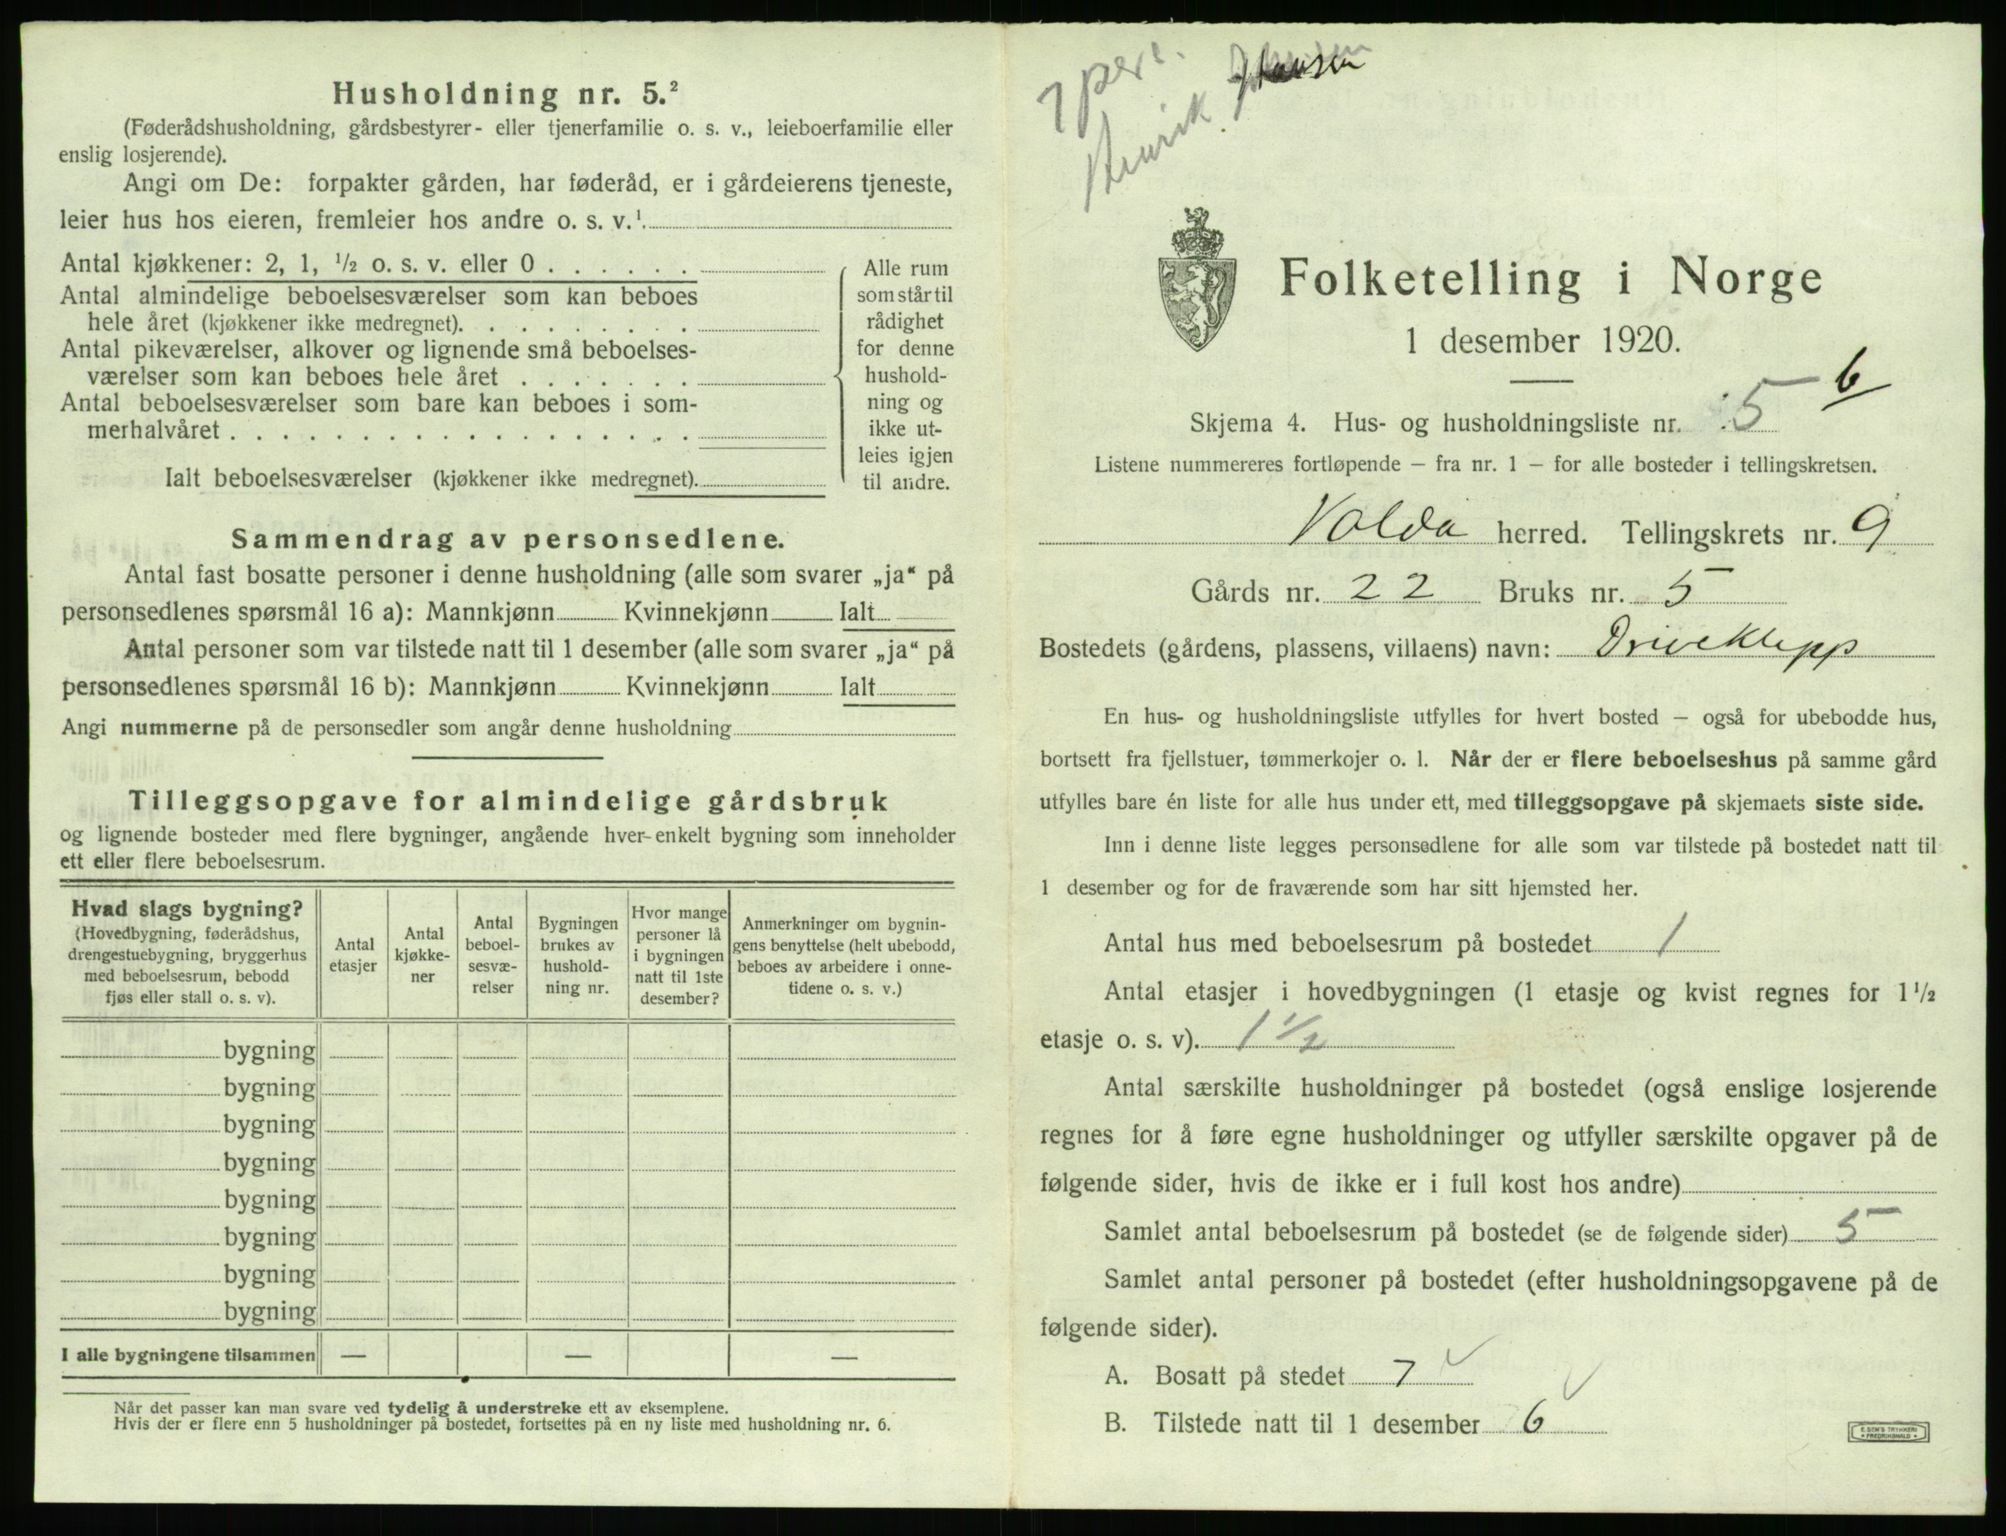 Husholdning nr. 5.²
(Føderådshusholdning, gårdsbestyrer- eller tjenerfamilie o. s. v., leieboerfamilie eller
enslig losjerende).
Angi om De: forpakter gården, har føderåd, er i gårdeierens tjeneste,
leier hus hos eieren, fremleier hos andre o. s. v.¹
Antal kjøkkener: 2, 1, ½ o. s. v. eller 0 . . . . . .
Antal almindelige beboelsesværelser som kan beboes
hele året (kjøkkener ikke medregnet). . . . . . . . .
Antal pikeværelser, alkover og lignende små beboelses-
værelser som kan beboes hele året . . . . . . .
Antal beboelsesværelser som bare kan beboes i som-
merhalvåret . . . . . . . . . . . . . . . . . .
Ialt beboelsesværelser (kjøkkener ikke medregnet).
Alle rum
som står til
rådighet
for denne
hushold-
ning og
ikke ut-
leies igjen
til andre.
Sammendrag av personsedlene.
Antal fast bosatte personer i denne husholdning (alle som svarer „ja“ på
personsedlenes spørsmål 16 a): Mannkjønn Kvinnekjønn Ialt
Antal personer som var tilstede natt til 1 desember (alle som svarer „ja“ på
personsedlenes spørsmål 16 b): Mannkjønn Kvinnekjønn Ialt
Angi nummerne på de personsedler som angår denne husholdning
Tilleggsopgave for almindelige gårdsbruk
og lignende bosteder med flere bygninger, angående hver enkelt bygning som inneholder
ett eller flere beboelsesrum.
Hvad slags bygning?
(Hovedbygning, føderådshus,
drengestuebygning, bryggerhus
med beboelsesrum, bebodd
fjøs eller stall o. s. v).
Antal
etasjer
Antal
kjøkke-
ner
Antal
beboel-
sesvæ-
relser
Bygningen
brukes av
hushold-
ning nr.
Hvor mange
personer lå
i bygningen
natt til 1ste
desember?
Anmerkninger om bygnin-
gens benyttelse (helt ubebodd,
beboes av arbeidere i onne-
tidene o. s. v.)
bygning
bygning
bygning
bygning
bygning
bygning
bygning
bygning
I alle bygningene tilsammen — — —
Når det passer kan man svare ved tydelig å understreke ett av eksemplene.
Hvis der er flere enn 5 husholdninger på bostedet, fortsettes på en ny liste med husholdning nr. 6.
7 pers.
Henrik Hansen
Folketelling i Norge
1 desember 1920.
Skjema 4. Hus- og husholdningsliste nr. 5 6
Listene nummereres fortløpende – fra nr. 1 – for alle bosteder i tellingskretsen.
Volda herred. Tellingskrets nr. 9
Gårds nr. 22 Bruks nr. 5
Bostedets (gårdens, plassens, villaens) navn: Driveklepp
En hus- og husholdningsliste utfylles for hvert bosted – også for ubebodde hus,
bortsett fra fjellstuer, tømmerkojer o. l. Når der er flere beboelseshus på samme gård
utfylles bare én liste for alle hus under ett, med tilleggsopgave på skjemaets siste side.
Inn i denne liste legges personsedlene for alle som var tilstede på bostedet natt til
1 desember og for de fraværende som har sitt hjemsted her.
Antal hus med beboelsesrum på bostedet 1
Antal etasjer i hovedbygningen (1 etasje og kvist regnes for 1½
etasje o. s. v). 1½
Antal særskilte husholdninger på bostedet (også enslige losjerende
regnes for å føre egne husholdninger og utfyller særskilte opgaver på de
følgende sider, hvis de ikke er i full kost hos andre)
Samlet antal beboelsesrum på bostedet (se de følgende sider) 5
Samlet antal personer på bostedet (efter husholdningsopgavene på de
følgende sider).
A. Bosatt på stedet 7 ✓
B. Tilstede natt til 1 desember 6 ✓
E. SEM'S TRYKKERI
FREDRIKSHALD